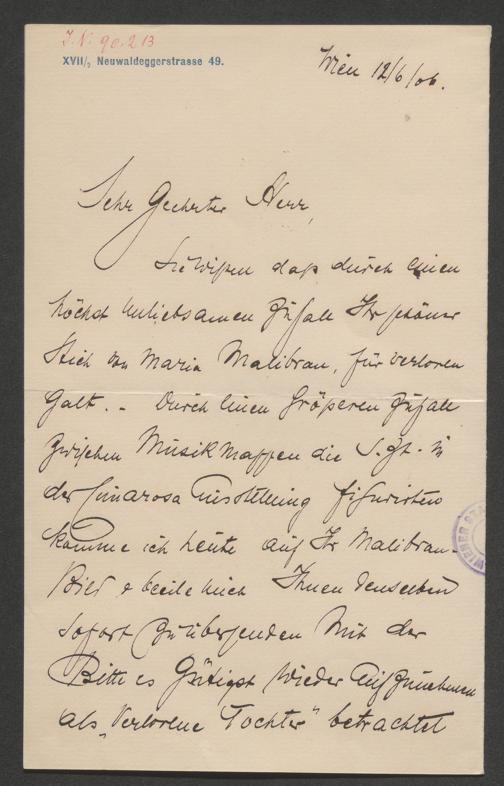 J. N. 90.213
XVII/2 Neuwaldeggerstrasse 49.
Wien 12/6/06.
Sehr Geehrter Herr,
Sie wissen daß durch einen
höchst unliebsamen Zufall Ihr schöner
Stich von Maria Malibran, für verloren
galt. - Durch einen größeren Zufall
zwischen Musikmappen die s. Zt. in
der Cimarosa Ausstellung figurirten
komme ich heute auf Ihr Malibran-
Bild & beeile mich Ihnen denselben
sofort zu übersenden mit der
Bitte es gütigst wieder aufzunehmen
als „Verlorene Tochter" betrachtet
WIENER